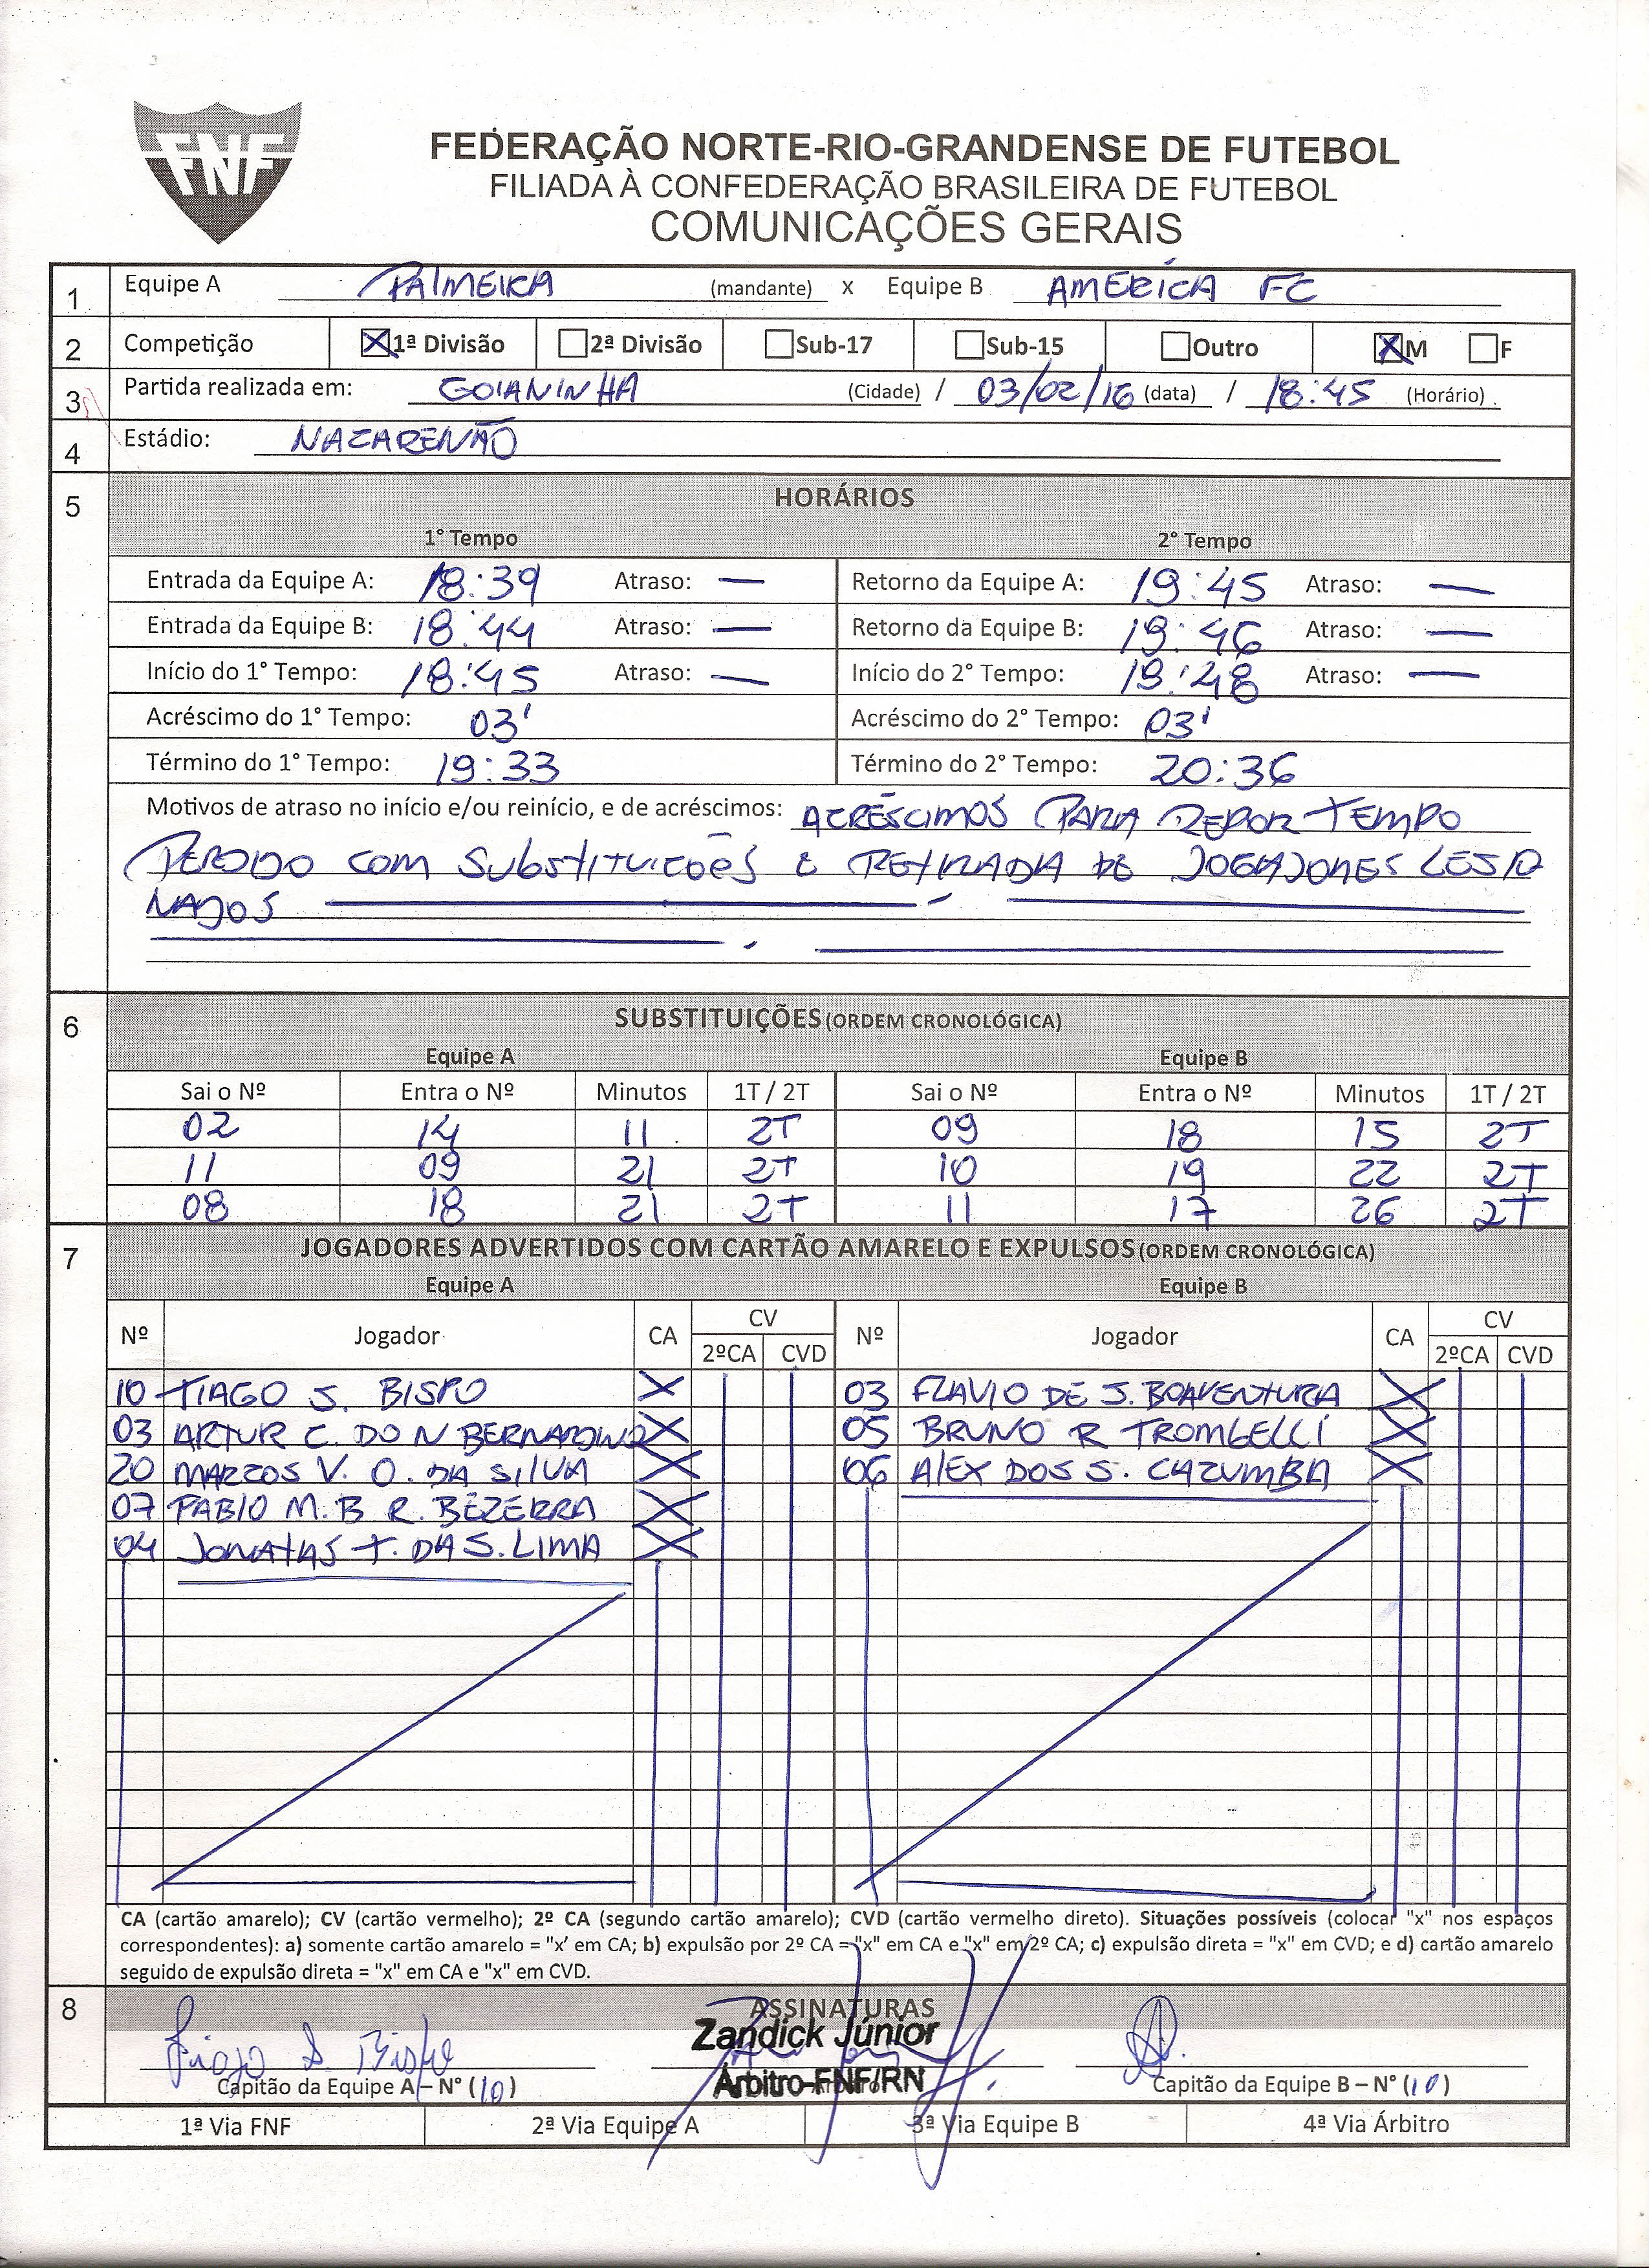 FNF
FEDERAÇÃO NORTE-RIO-GRANDENSE DE FUTEBOL
FILIADA À CONFEDERAÇÃO BRASILEIRA DE FUTEBOL
COMUNICAÇÕES GERAIS
1 Equipe A PALMEIRA (mandante) x Equipe B AMÉRICA FC
2 Competição 1ª Divisão 2ª Divisão Sub-17 Sub-15 Outro M F
3 Partida realizada em: GOIANINHA (Cidade) / 03/02/16 (data) / 18:45 (Horário)
4 Estádio: NAZARENÃO
5 HORÁRIOS
1° Tempo 2° Tempo
Entrada da Equipe A: 18:39 Atraso: — Retorno da Equipe A: 19:45 Atraso: —
Entrada da Equipe B: 18:44 Atraso: — Retorno da Equipe B: 19:46 Atraso: —
Início do 1° Tempo: 18:45 Atraso: — Início do 2° Tempo: 19:48 Atraso: —
Acréscimo do 1° Tempo: 03' Acréscimo do 2° Tempo: 03'
Término do 1° Tempo: 19:33 Término do 2° Tempo: 20:36
Motivos de atraso no início e/ou reinício, e de acréscimos: ACRÉSCIMOS PARA REPOR TEMPO
PERDIDO COM SUBSTITUICÕES E RETIRADA DE JOGADORES LESIO
NADOS
6 SUBSTITUIÇÕES (ORDEM CRONOLÓGICA)
Equipe A Equipe B
Sai o Nº Entra o Nº Minutos 1T / 2T Sai o Nº Entra o Nº Minutos 1T / 2T
02 14 11 2T 09 18 15 2T
11 09 21 2T 10 19 22 2T
08 18 21 2T 11 17 26 2T
7 JOGADORES ADVERTIDOS COM CARTÃO AMARELO E EXPULSOS (ORDEM CRONOLÓGICA)
Equipe A Equipe B
Nº Jogador CA CV 2ºCA CVD Nº Jogador CA CV 2ºCA CVD
10 TIAGO S. BISPO X 03 FLAVIO DE S. BOAVENTURA X
03 ARTUR C. DO N BERNARDINO X 05 BRUNO R TROMBELLI X
20 MARCOS V. O. DA SILVA X 06 ALEX DOS S. CAZUMBA X
07 FABIO M. B R. BEZERRA X
04 JONATAS T. DA S. LIMA X
CA (cartão amarelo); CV (cartão vermelho); 2º CA (segundo cartão amarelo); CVD (cartão vermelho direto). Situações possíveis (colocar "x" nos espaços
correspondentes): a) somente cartão amarelo = "x' em CA; b) expulsão por 2º CA = "x" em CA e "x" em 2º CA; c) expulsão direta = "x" em CVD; e d) cartão amarelo
seguido de expulsão direta = "x" em CA e "x" em CVD.
8 ASSINATURAS
Tiago S Bispo Zandick Júnior
Capitão da Equipe A – N° (10) Árbitro-FNF/RN Capitão da Equipe B – N° (10)
1ª Via FNF 2ª Via Equipe A 3ª Via Equipe B 4ª Via Árbitro